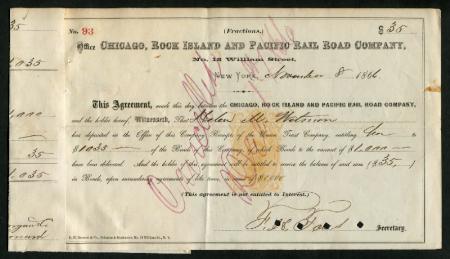 No. 93 (Fractions.) $35
Office CHICAGO, ROCK ISLAND AND PACIFIC RAIL ROAD COMPANY,
No. 13 William Street,
NEW YORK, November 8 1866
This Agreement, made this day between the CHICAGO, ROCK ISLAND AND PACIFIC RAIL ROAD COMPANY,
and the holder hereof Witnesseth, That Helen M.
has deposited in the Office of this Company Receipts of the Union Trust Company entitling her to
$1035 of the Bonds of this Company, of which Bonds to the amount of $1,000
have been delivered. And the holder of this agreement will be entitled to receive the balance of said sum ($35)
in Bonds, upon surrendering agreements of like
(This agreement is not entitled to Interest.)
Secretary.
Cancelled
1035
,000
35
1,035